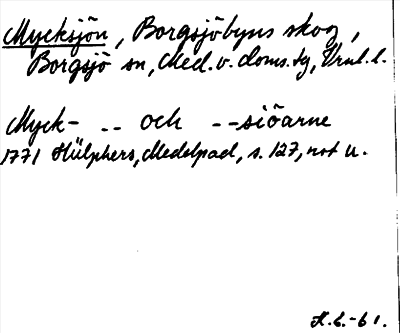 Mycksjön, Borgsjöbyns skog,
Borgsjö sn, Med. v. doms. tg, Vrnl. l.
Myck- -- och --siöarne
1771 Hülphers, Medelpad, s. 127, not u.
H.G.-61.